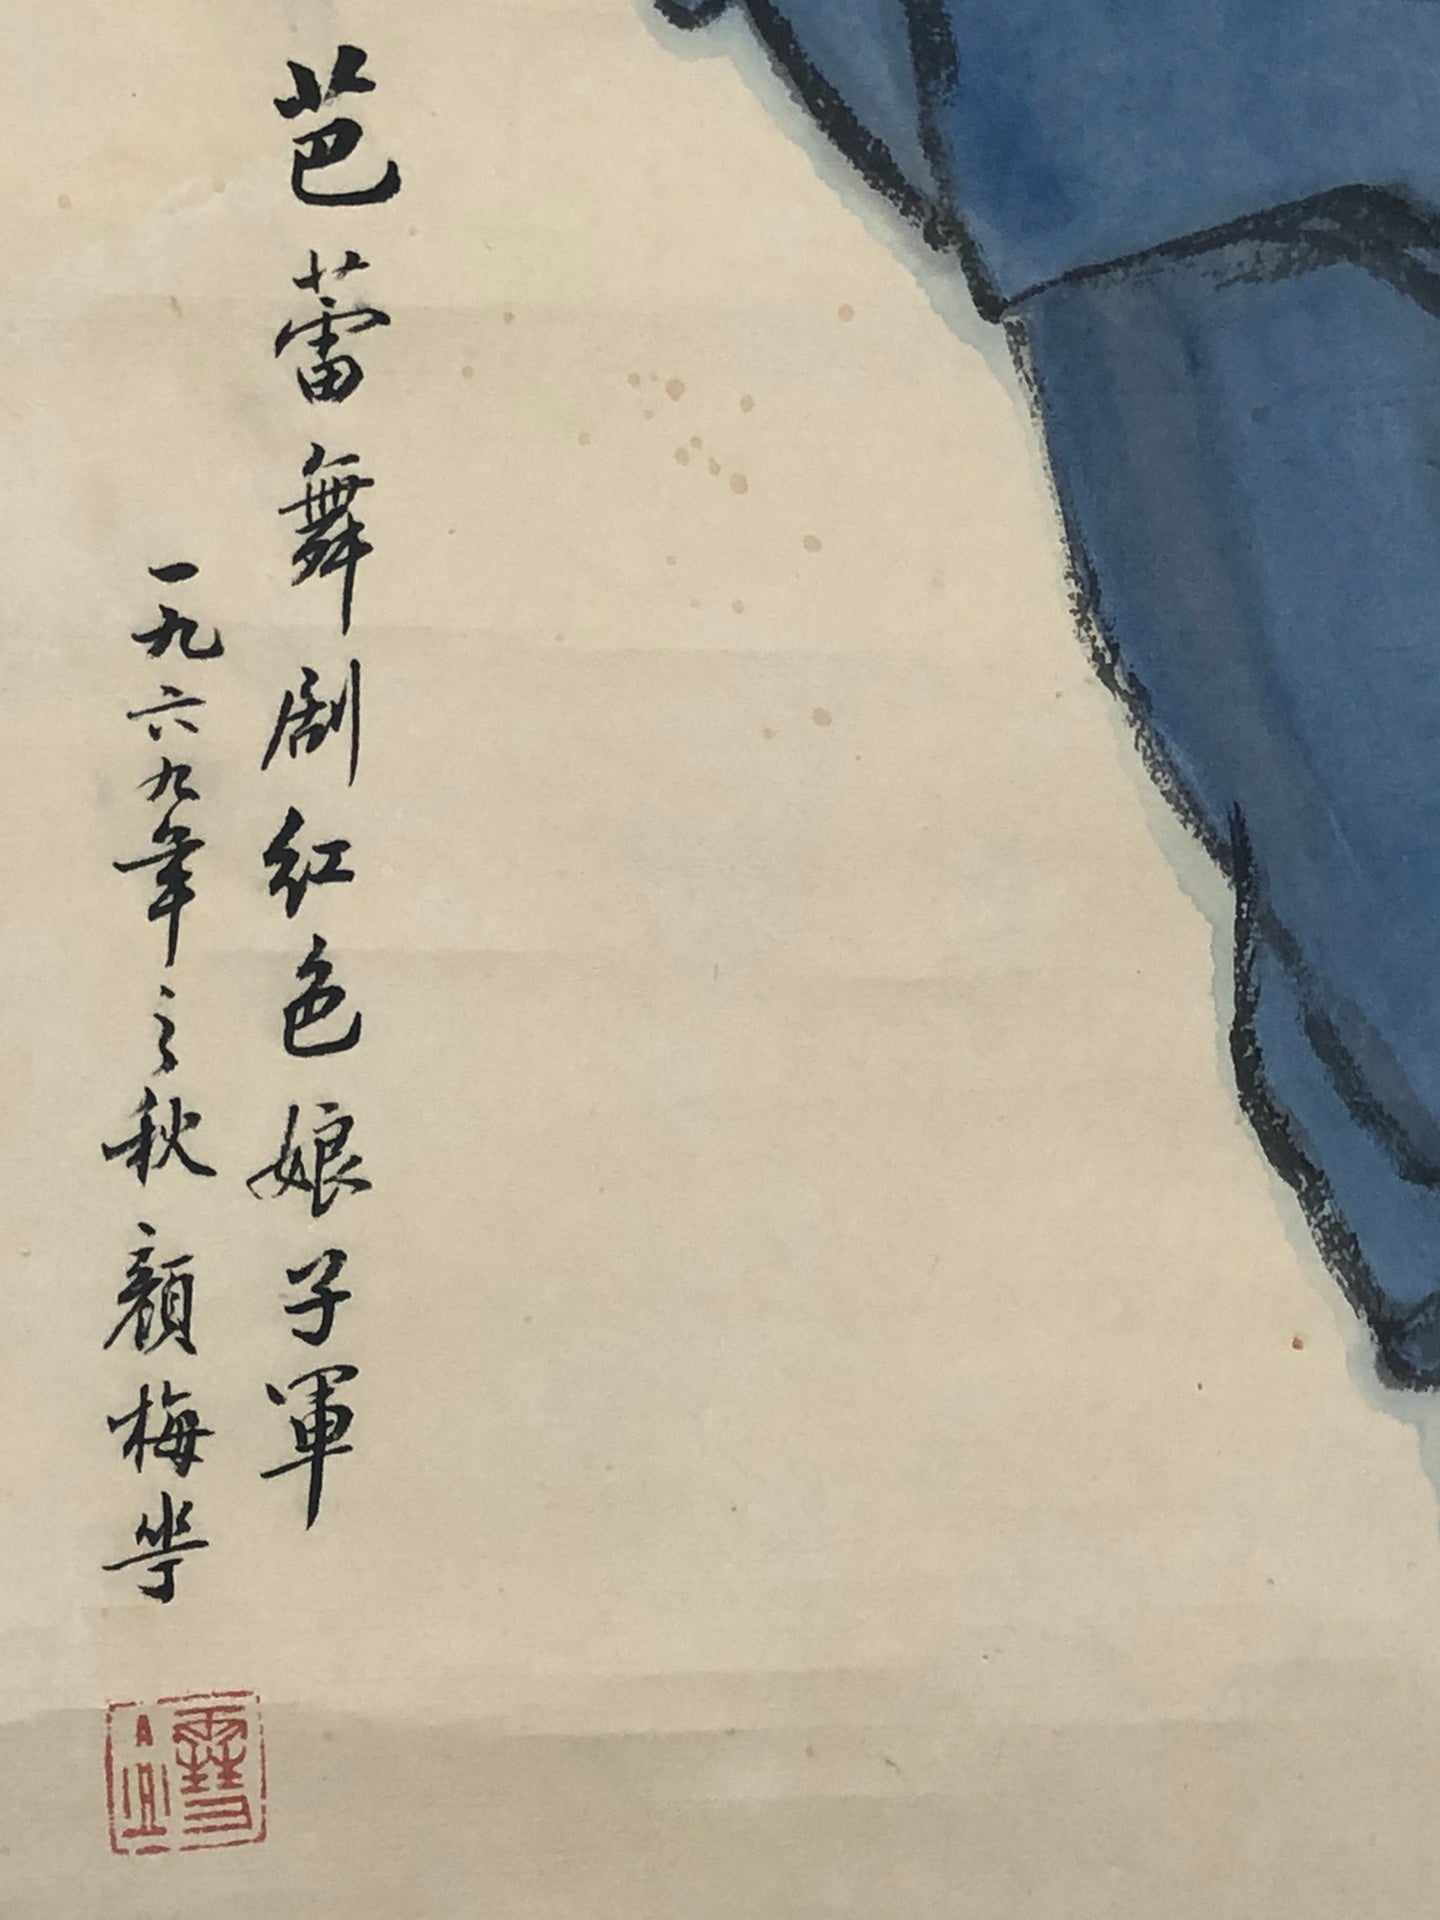 芭蕾舞剧红色娘子軍
一九六九年之秋顏梅华